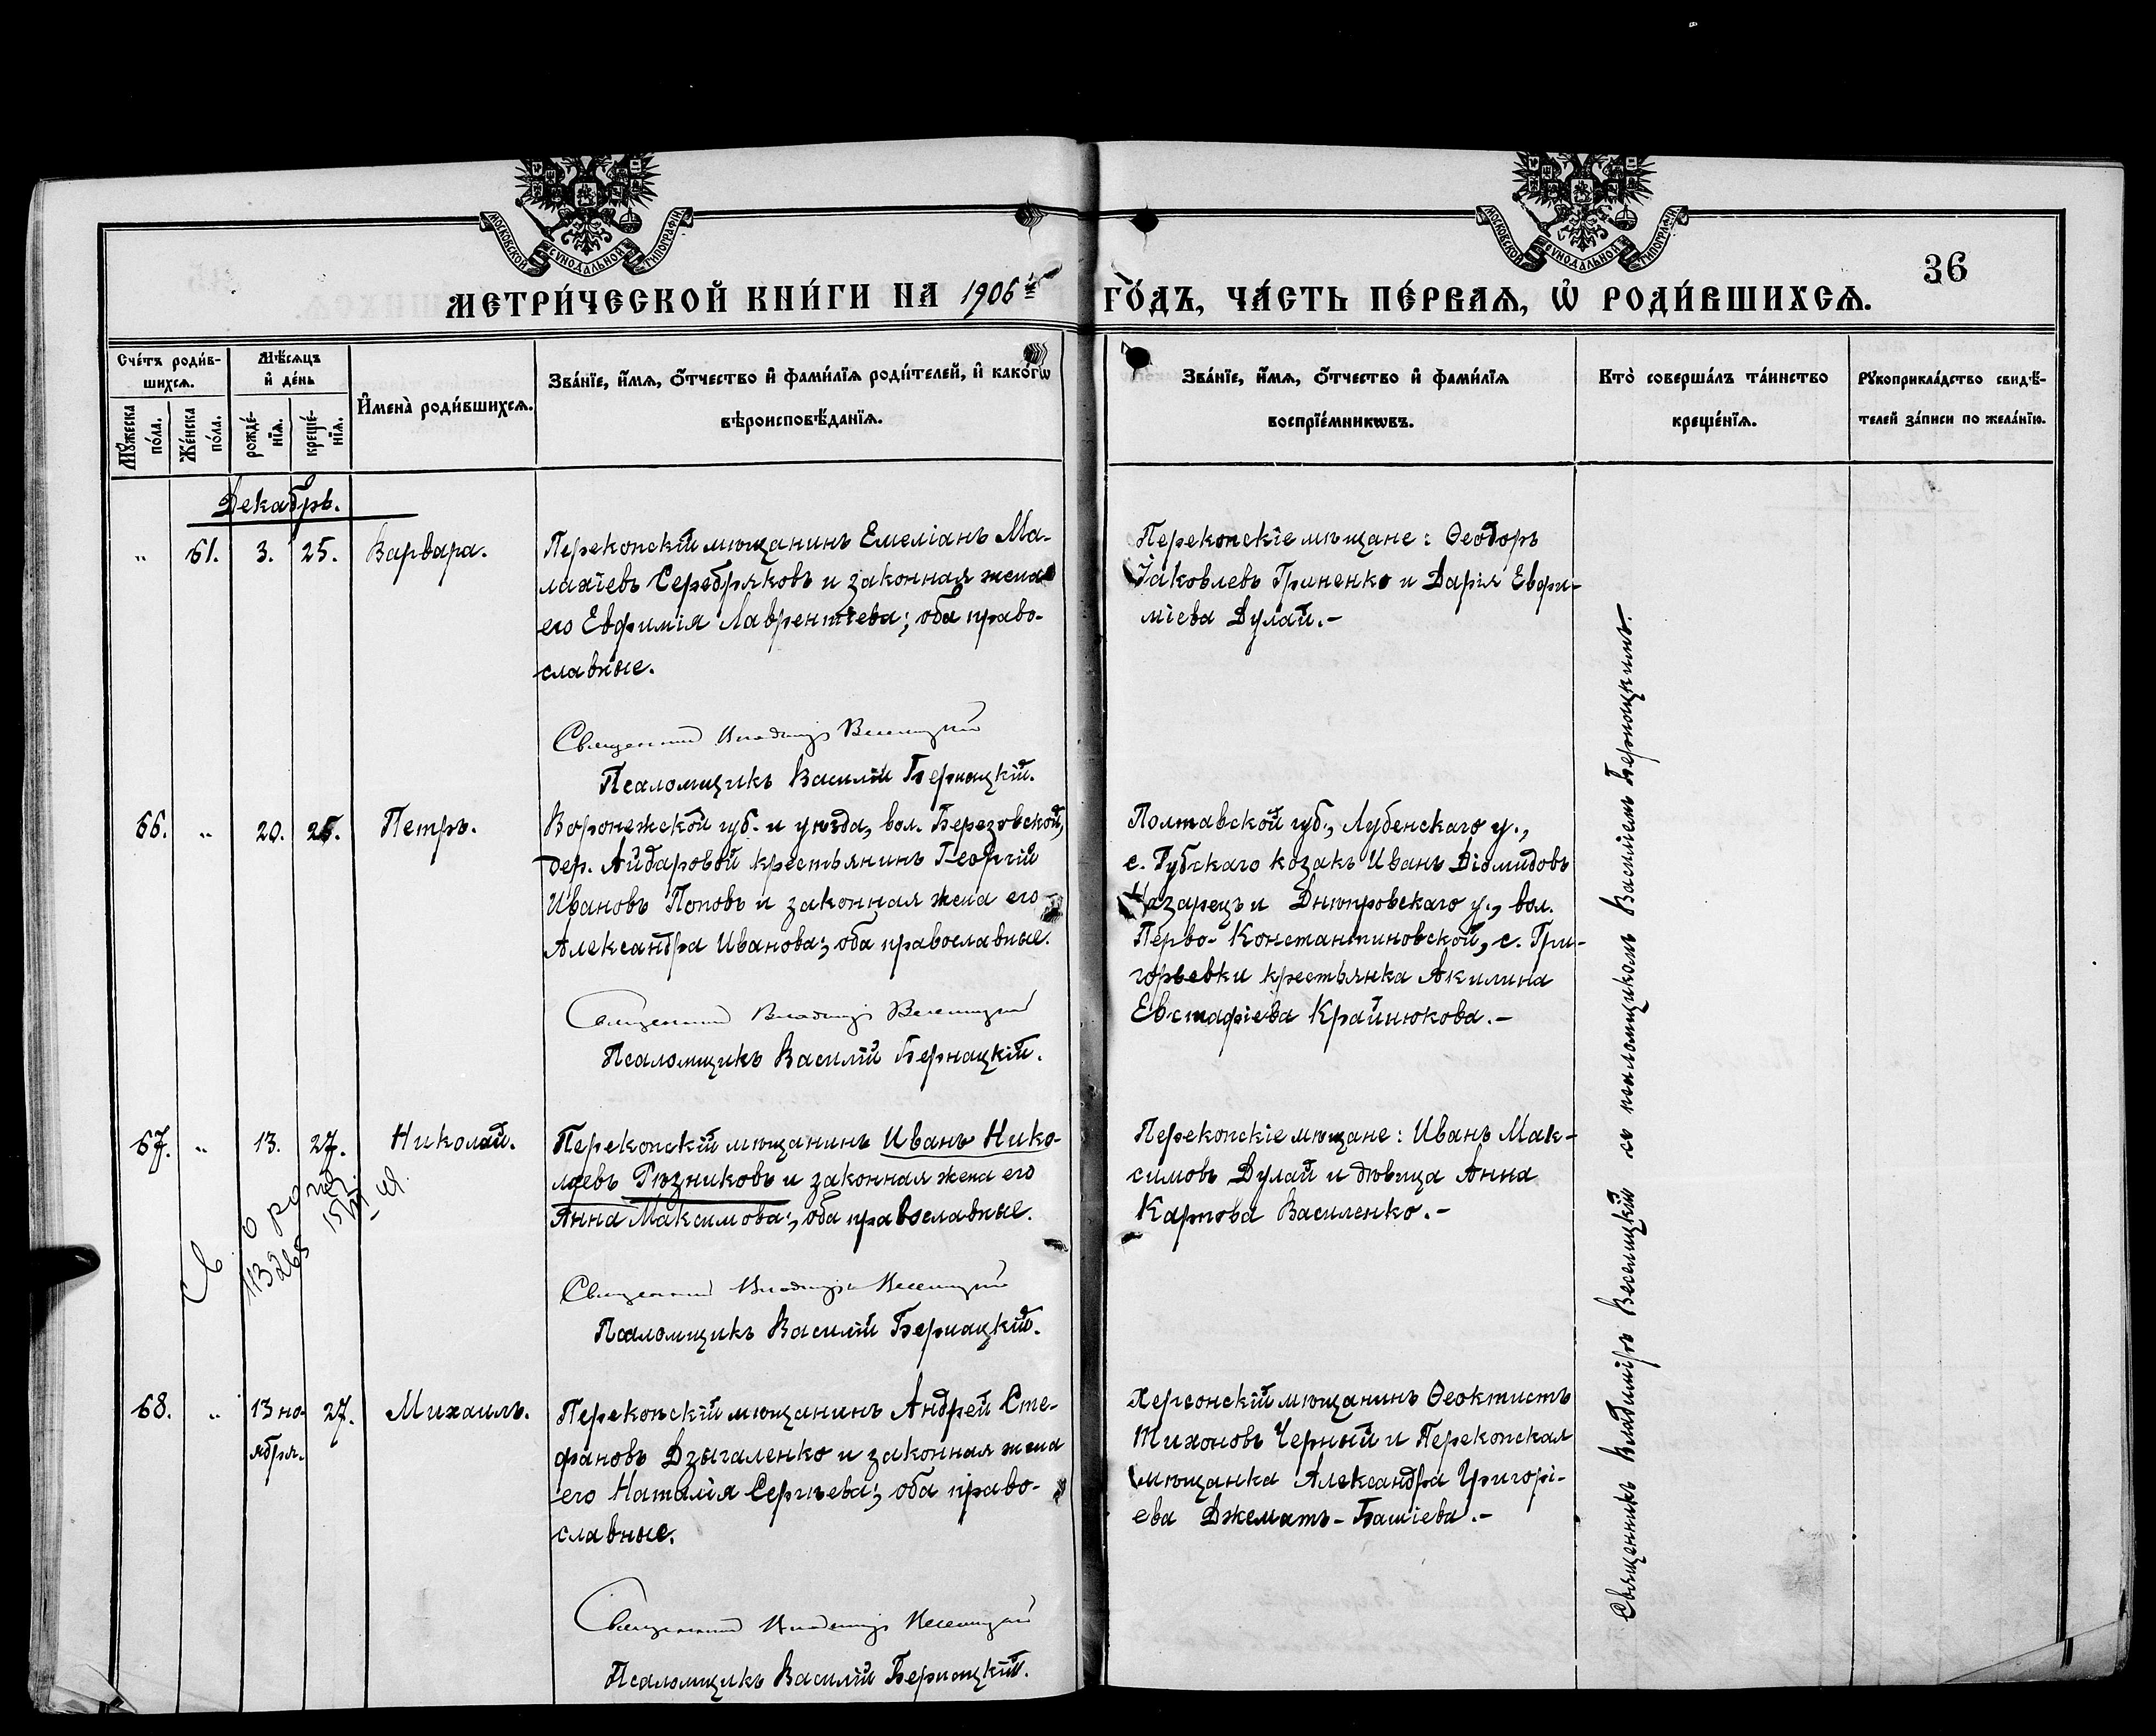 МОСКОВСКОЙ СѴНОДАЛЬНОЙ ТИПОГРАФІИ
МОСКОВСКОЙ СѴНОДАЛЬНОЙ ТИПОГРАФІИ
36
МЕТРИ́ЧЕСКОЙ КНИ́ГИ НА 1906й
ГО́ДЪ, ЧА́СТЬ ПЕ́РВАѦ, Ѡ҆ РОДИ́ВШИХСѦ.
Сче́тъ роди́в-
шихсѧ.
Мꙋ́жеска
по́ла.
Же́нска
по́ла.
Мѣ́сѧцъ
и҆ де́нь
рожде́-
нїѧ.
креще́-
нїѧ.
И҆мена̀ роди́вшихсѧ.
Зва́нїе, и҆́мѧ, ѻ҆́тчество и҆ фами́лїѧ роди́телей, и҆ како́гѡ
вѣроисповѣ́данїѧ.
Зва́нїе, и҆́мѧ, ѻ҆́тчество и҆ фами́лїѧ
воспрїе́мникѡвъ.
Кто̀ соверша́лъ та́инство
креще́нїѧ.
Рꙋкоприкла́дство свидѣ́-
телей за́писи по жела́нїю.
Декабрь.
„ 61. 3. 25. Варвара.
Перекопскій мѣщанинъ Емеліанъ Ма-
лахіевъ Серебряковъ и законная жена
его Евфимія Лаврентіева; оба право-
славные.
Священникъ Владиміръ Веселицкій
Псаломщикъ Василій Бернацкій.
Перекопскіе мѣщане: Ѳеодоръ
Іаковлевъ Гриненко и Дарія Евфи-
міева Дулай.-
66. „ 20. 25. Петръ.
Воронежской губ. и уѣзда, вол. Березовской,
дер. Айдаровой крестьянинъ Георгій
Ивановъ Поповъ и законная жена его
Александра Иванова; оба православные.
Священникъ Владиміръ Веселицкій
Псаломщикъ Василій Бернацкій.
Полтавской губ., Лубенскаго у.,
с. Губскаго козакъ Иванъ Діомидовъ
Назарецъ и Днѣпровскаго у., вол.
Перво-Константиновской, с. Гри-
горьевки крестьянка Акилина
Евстафіева Крайнюкова.-
67. „ 13. 27. Николай.
Перекопскій мѣщанинъ Иванъ Нико-
лаевъ Рѣзниковъ и законная жена его
Анна Максимова; оба православные.
Священникъ Владиміръ Веселицкій
Псаломщикъ Василій Бернацкій.
Перекопскіе мѣщане: Иванъ Мак-
симовъ Дулай и дѣвица Анна
Карпова Василенко.-
Св. о рожд.
68. „ 13 но- 27. Михаилъ.
ября.
Перекопскій мѣщанинъ Андрей Сте-
фановъ Дзыгаленко и законная жена
его Наталія Сергѣева; оба право-
славные.
Священникъ Владиміръ Веселицкій
Псаломщикъ Василій Бернацкій.
Херсонскій мѣщанинъ Ѳеоктистъ
Тихоновъ Черный и Перекопская
мѣщанка Александра Григорі-
ева Джематъ-Башіева.-
Священникъ Владиміръ Веселицкій съ псаломщикомъ Василіемъ Бернацкимъ.